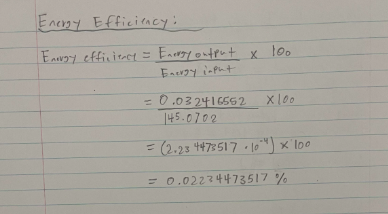 Energy Efficiency:
Energy efficiency = Energy output × 100
Energy input
= 0.032416552 × 100
145.0702
= (2.234473517 · 10⁻⁴) × 100
= 0.02234473517 %